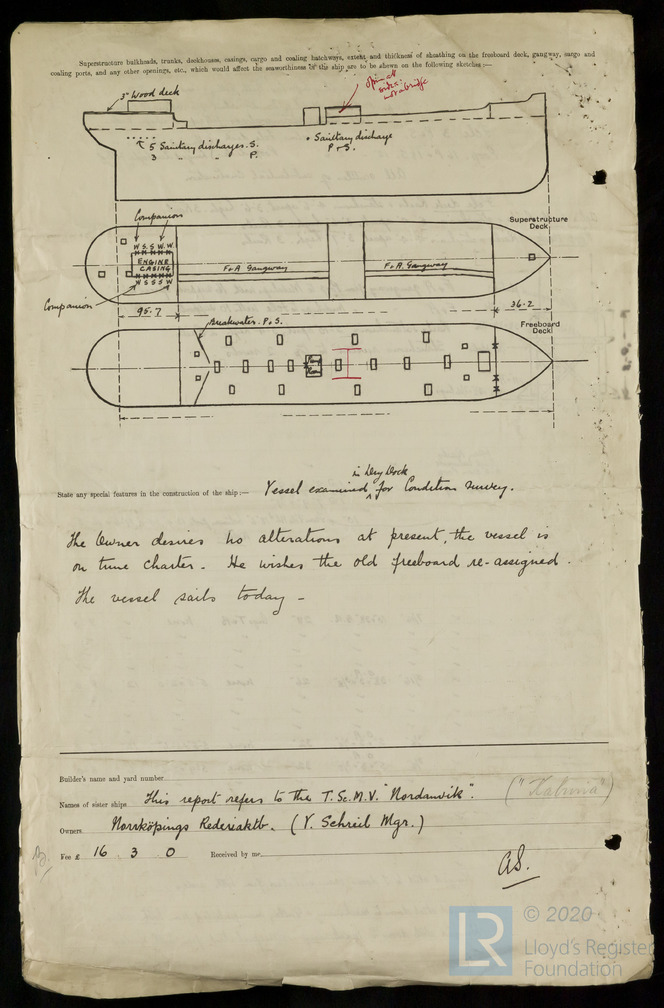 Superstructure bulkheads, trunks, deckhouses, casings, cargo and coaling hatchways, extent and thickness of sheathing on the freeboard deck, gangway, cargo and
coaling ports, and any other openings, etc., which would affect the seaworthiness of the ship are to be shewn on the following sketches:—
3" Wood deck
open at
ends.
not a bridge
5 Sanitary discharges. S.
3 " " P.
Sanitary discharge
P & S.
Companion
Superstructure
Deck
W S S W W
ENGINE
CASING
W S S S W
F & A Gangway
F & A. Gangway
Companion
95·7
36·2
Breakwater. P & S.
Freeboard
Deck
Pump
Room
in Dry Dock
State any special features in the construction of the ship:— Vessel examined ^ for Condition Survey.
The Owner desires no alterations at present, the vessel is
on time charter - He wishes the old freeboard re-assigned.
The vessel sails today -
Builder's name and yard number
Names of sister ships This report refers to the T.Sc.M.V. "Nordanvik". ("Kalmia")
Owners Norrköpings Rederiaktb. (Y. Schreil Mgr.)
Fee £ 16 . 3 . 0 Received by me
AS.
LR
© 2020
Lloyd's Register
Foundation